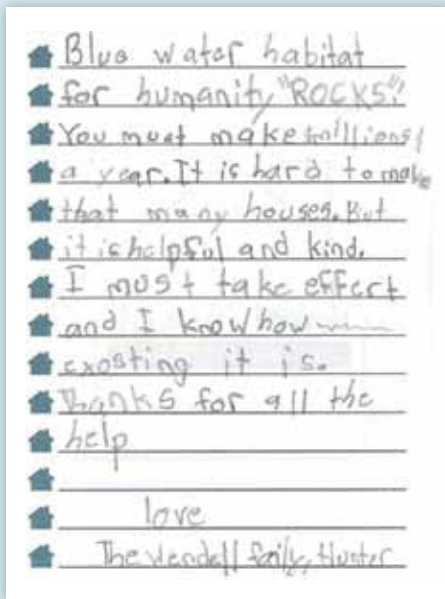 Blue water habitat
for humanity "ROCKS"!
You must make millions
a year. It is hard to make
that many houses. But
it is helpful and kind.
I must take effert
and I know how
exosting it is.
Thanks for all the
help
love
The Wendell faily, Hunter